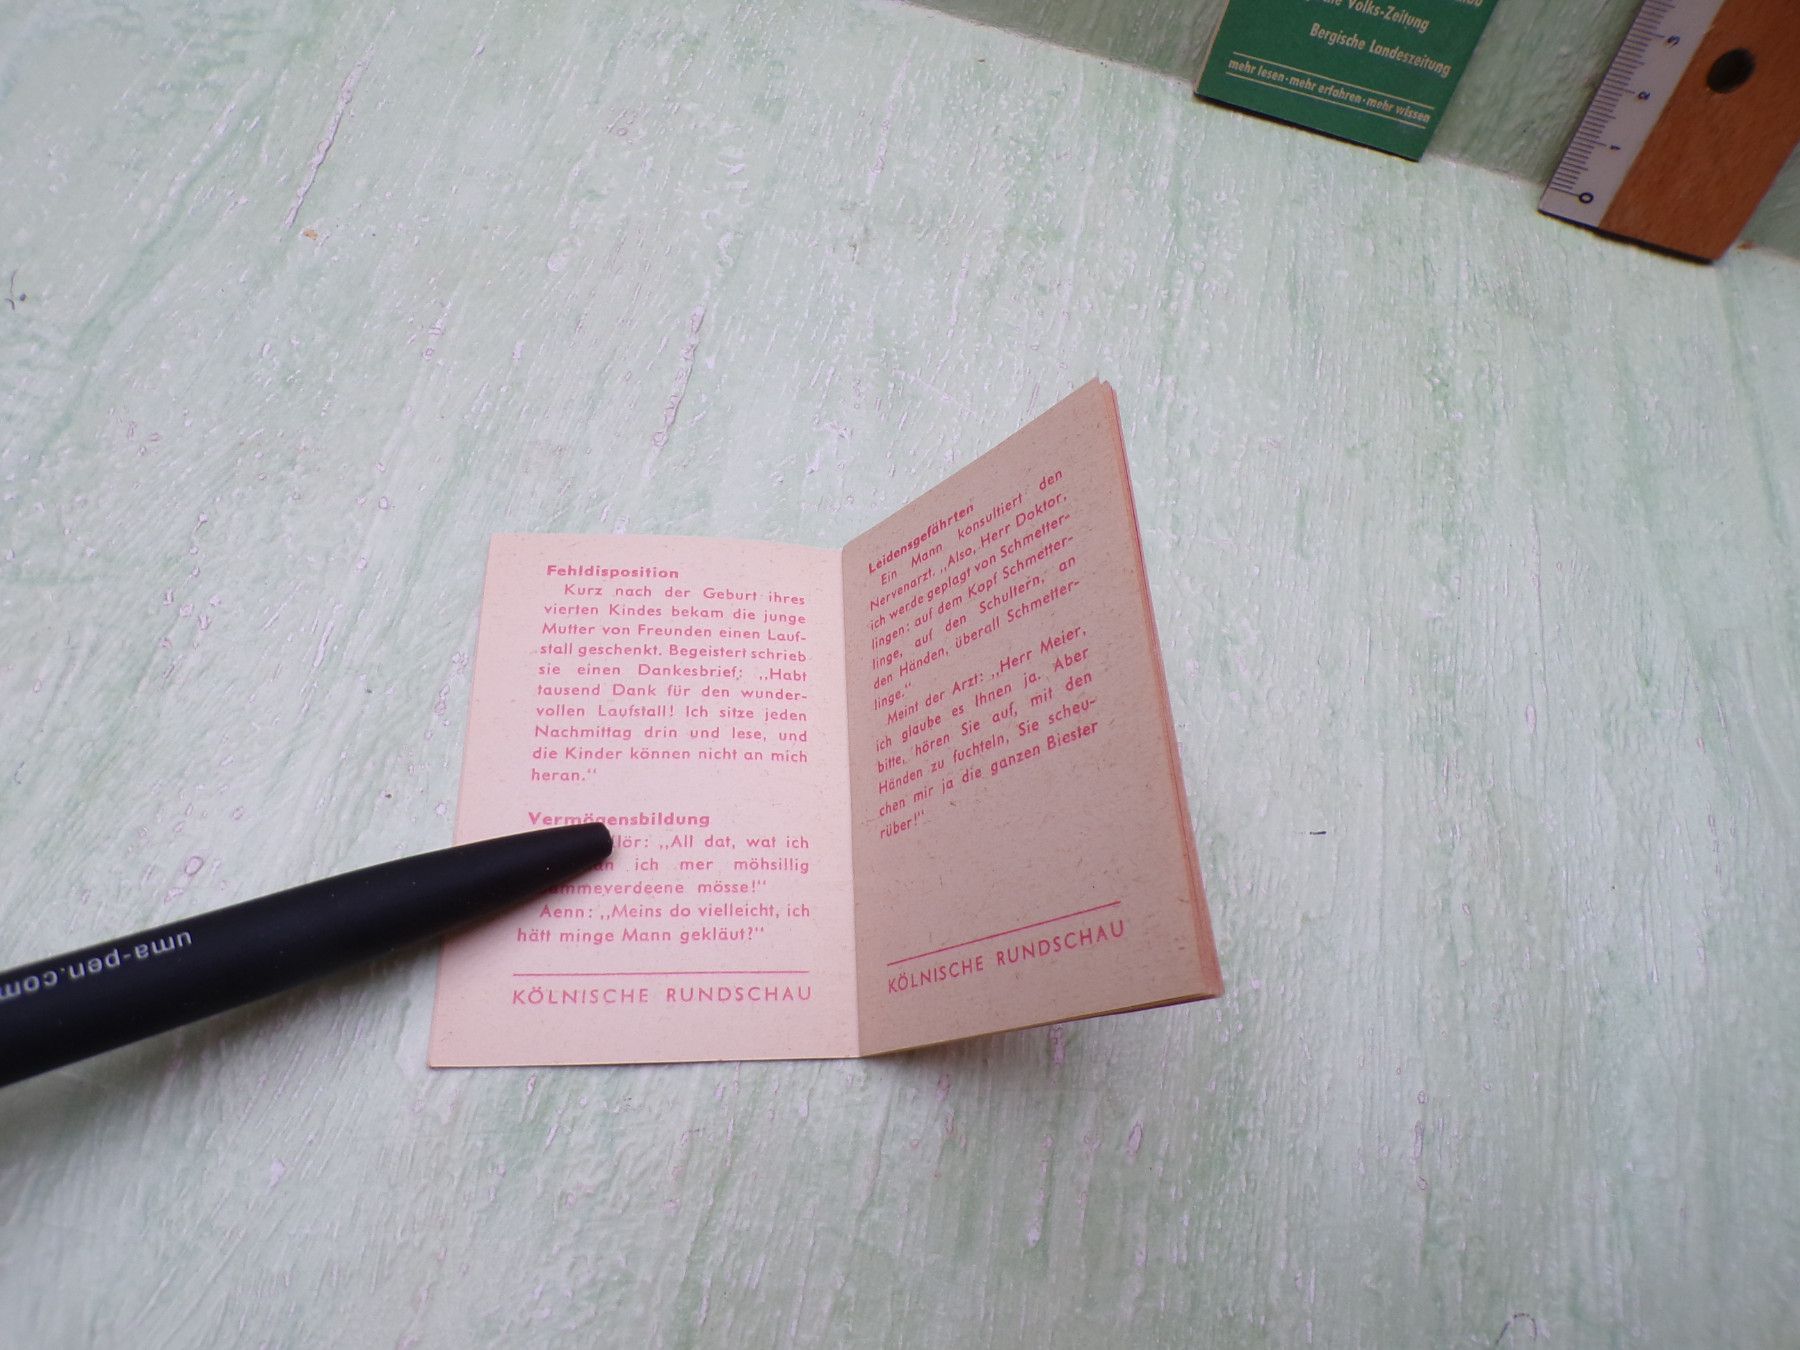 Volks-Zeitung
Bergische Landeszeitung
mehr lesen·mehr erfahren·mehr wissen
3
2
1
0
Fehldisposition
Kurz nach der Geburt ihres
vierten Kindes bekam die junge
Mutter von Freunden einen Lauf-
stall geschenkt. Begeistert schrieb
sie einen Dankesbrief: „Habt
tausend Dank für den wunder-
vollen Laufstall! Ich sitze jeden
Nachmittag drin und lese, und
die Kinder können nicht an mich
heran.“
Vermögensbildung
„All dat, wat ich
ich mer möhsillig
mösse!“
Aenn: „Meins do vielleicht, ich
hätt minge Mann gekläut?“
KÖLNISCHE RUNDSCHAU
Leidensgefährten
Ein Mann konsultiert den
Nervenarzt. „Also, Herr Doktor,
ich werde geplagt von Schmetter-
lingen: auf dem Kopf Schmetter-
linge, auf den Schultern, an
den Händen, überall Schmetter-
linge.“
Meint der Arzt: „Herr Meier,
ich glaube es Ihnen ja. Aber
bitte, hören Sie auf, mit den
Händen zu fuchteln, Sie scheu-
chen mir ja die ganzen Biester
rüber!“
KÖLNISCHE RUNDSCHAU
uma-pen.com